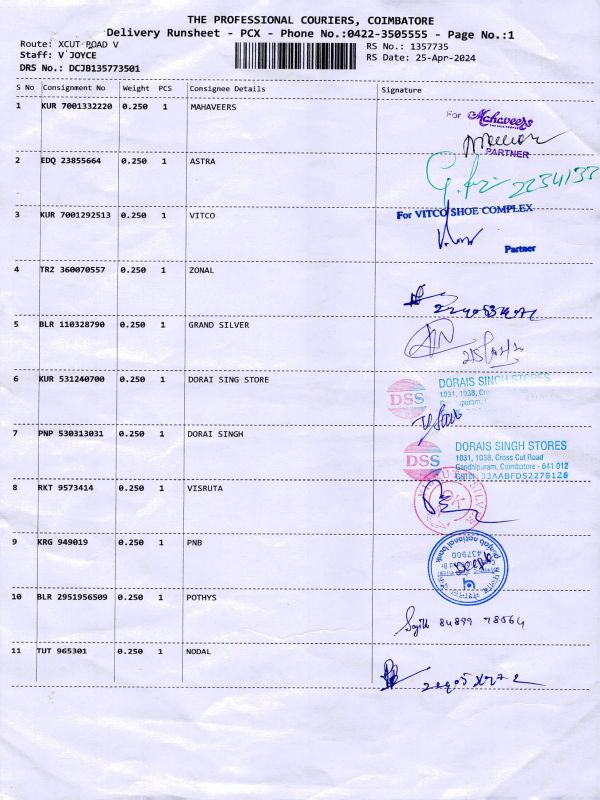 THE PROFESSIONAL COURIERS, COIMBATORE
Delivery Runsheet - PCX - Phone No.:0422-3505555 - Page No.:1
Route: XCUT ROAD V
Staff: V JOYCE
DRS No.: DCJB135773501
RS No.: 1357735
RS Date: 25-Apr-2024
S No Consignment No Weight PCS Consignee Details Signature
1 KUR 7001332220 0.250 1 MAHAVEERS
For Mahaveers
PARTNER
2 EDQ 23855664 0.250 1 ASTRA
2234133
3 KUR 7001292513 0.250 1 VITCO
For VITCO SHOE COMPLEX
Partner
4 TRZ 360070557 0.250 1 ZONAL
5 BLR 110328790 0.250 1 GRAND SILVER
6 KUR 531240700 0.250 1 DORAI SING STORE
DSS
DORAIS SINGH STORES
1031, 1038, Cross
7 PNP 530313031 0.250 1 DORAI SINGH
DSS
DORAIS SINGH STORES
1031, 1038, Cross Cut Road
Gandhipuram, Coimbatore - 641 012
GSTIN 33AABFD5227B1Z6
8 RKT 9573414 0.250 1 VISRUTA
9 KRG 949019 0.250 1 PNB
punjab national bank
437900
10 BLR 2951956509 0.250 1 POTHYS
84899 78564
11 TUT 965301 0.250 1 NODAL